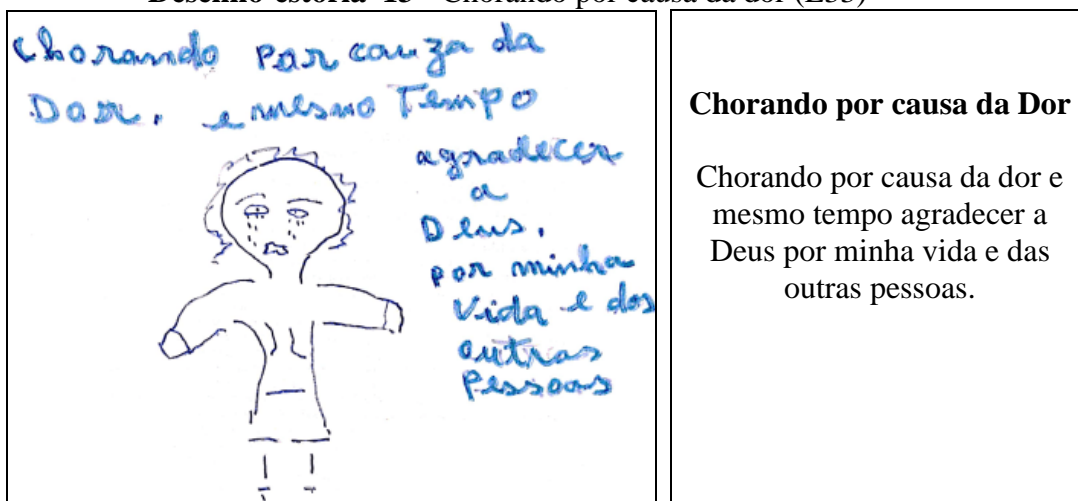 Desenho-estória 13 - Chorando por causa da dor (E33)
Chorando Por cauza da
Dor. e mesmo Tempo
agradecer
a
Deus.
por minha
Vida e dos
outras
Pessoas
Chorando por causa da Dor
Chorando por causa da dor e
mesmo tempo agradecer a
Deus por minha vida e das
outras pessoas.